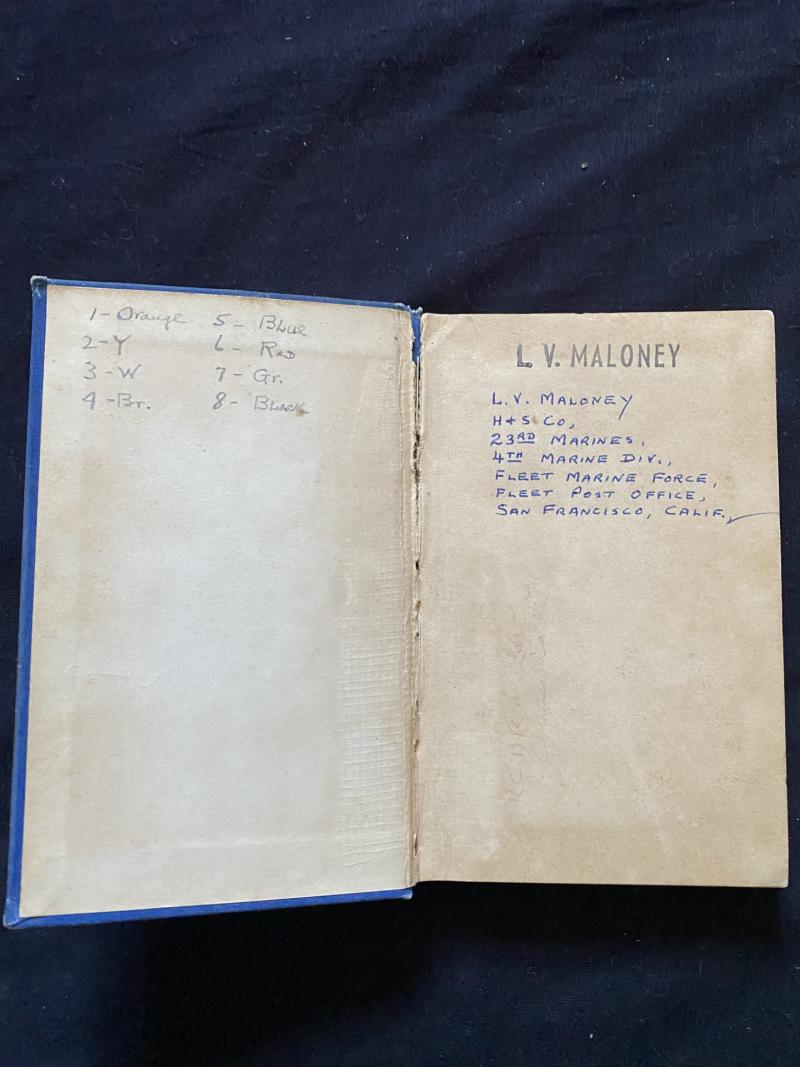 1 - Orange
2 - Y
3 - W
4 - Br.
5 - Blue
6 - Red
7 - Gr.
8 - Black
L. V. MALONEY
L. V. MALONEY
H & S CO,
23RD MARINES,
4TH MARINE DIV.,
FLEET MARINE FORCE,
FLEET POST OFFICE,
SAN FRANCISCO, CALIF.,